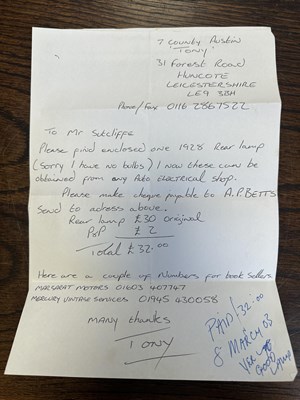 7 COUNTY AUSTIN
'TONY'
31 FOREST ROAD
HUNCOTE
LEICESTERSHIRE
LE9 3BH
Phone/Fax 0116 2867522
To Mr Sutcliffe
Please find enclosed one 1928 Rear lamp
(Sorry I have no bulbs) I now these can be
obtained from any Auto ELECTRICAL shop.
Please make cheque payable to A.P. BETTS
Send to adress above.
Rear lamp £30 original
P+P £2
Total £32.00
Here are a couple of Numbers for book sellers
MOTORS 01603 407747
MERCURY VINTAGE SERVICES 01945 430058
MANY thanks
TONY
PAID £32.00
8 MARCH 03
GOOD